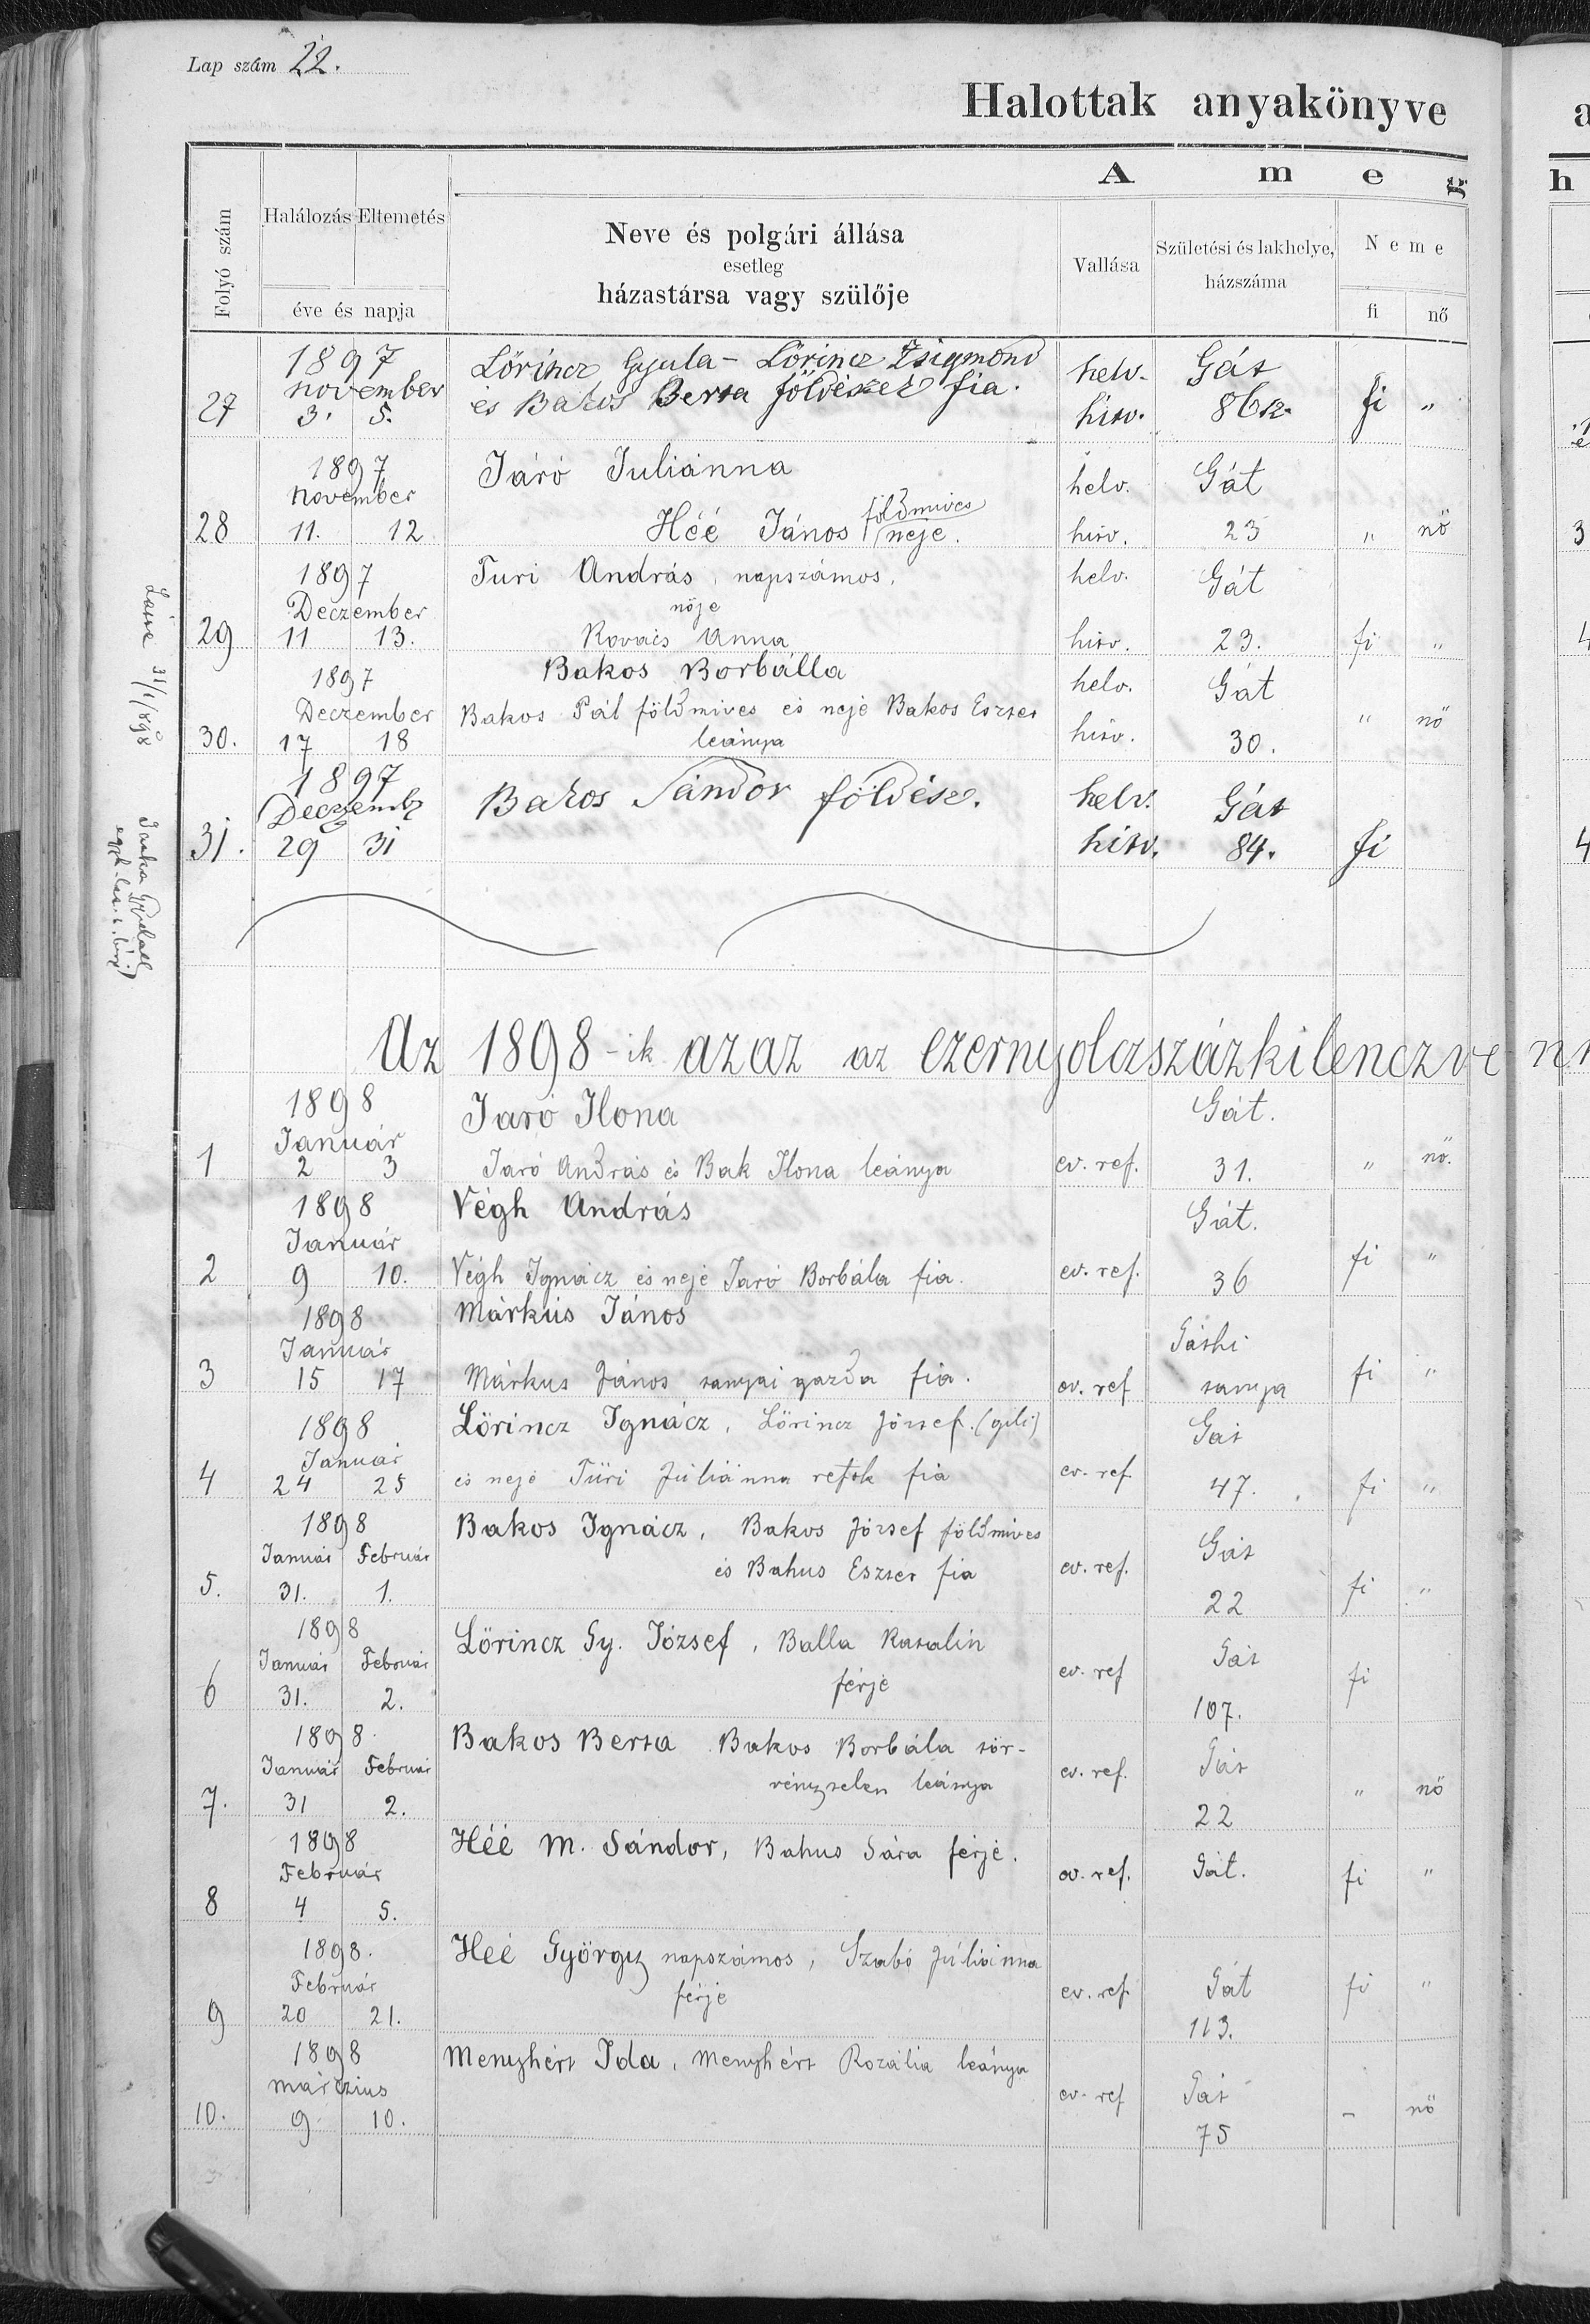 Lap szám 22.
Halottak anyakönyve
A m e g
Folyó szám
Halálozás Eltemetés
éve és napja
Neve és polgári állása
esetleg
házastársa vagy szülője
Vallása
Születési és lakhelye,
házszáma
Neme
fi nő
1897 Lőrincz Gyula - Lőrincz Zsigmond helv. Gát
november és Bakos Berta földész fia.
27 3. 5. hitv. 86 fi „
1897 Járó Juliánna helv. Gát
november földmives
28 11. 12 Héé János neje. hitv. 23 „ nő
1897 Turi András, napszámos, helv. Gát
Deczember nője
29 11 13. Kovács Anna hitv. 23. fi „
1897 Bakos Borbálla helv. Gát
Deczember Bakos Pál földmives és neje Bakos Eszter „ nő
30. 17 18 leánya hitv. 30.
1897 Bakos Sándor földész. helv. Gát
Deczemb
31. 29 31 hitv. 84. fi
31/1/898
Az 1898-ik azaz az ezernyolczszázkilenczven
1898 Jaró Ilona Gát.
Január
1 2 3 Jaró András és Bak Ilona leánya ev. ref. 31. „ nő.
1898 Végh András Gát.
Január
2 9 10. Végh Ignácz és neje Jaró Borbála fia. ev. ref. 36 fi „
1898 Márkus János Gáthi
Január
3 15 17 Márkus János tanyai gazda fia. ev. ref tanya fi „
1898 Lőrincz Ignácz, Lőrincz József. Gát
Január
4 24 25 és neje Türi Júliánna refok fia ev. ref. 47. fi „
1898 Bakos Ignácz, Bakos József földmives Gát
Január Február és Bahus Eszter fia ev. ref.
5. 31. 1. 22 fi „
1898 Lőrincz Gy. József, Balla Katalin Gát
Január Február férje ev. ref fi
6 31. 2. 107.
1898 Bakos Berta Bakos Borbála tör-
Január Február vénytelen leánya ev. ref. Gát
7. 31 2. 22 „ nő
1898 Héé M. Sándor, Bahus Sára férje.
Február ev. ref. Gát. fi „
8 4 5.
1898. Héé György napszámos, Szabó Júliánna
Február férje ev. ref Gát fi „
9 20 21. 113.
1898 Menyhért Ida, Menyhért Rozália leánya
márczius ev. ref Gát
10. 9 10. 75 - nő